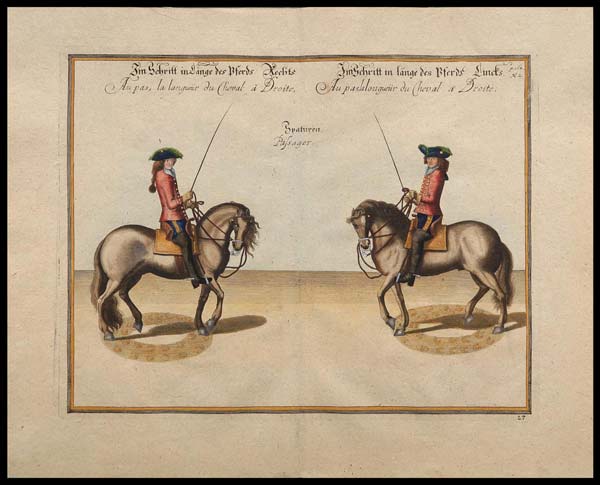 Im Schritt in Länge des Pferds Rechts
Au pas, la longueur du Cheval à Droite.
Im Schritt in länge des Pferds Lincks
Au pas la longueur du Cheval a Droite.
Spatziren
Passager
27